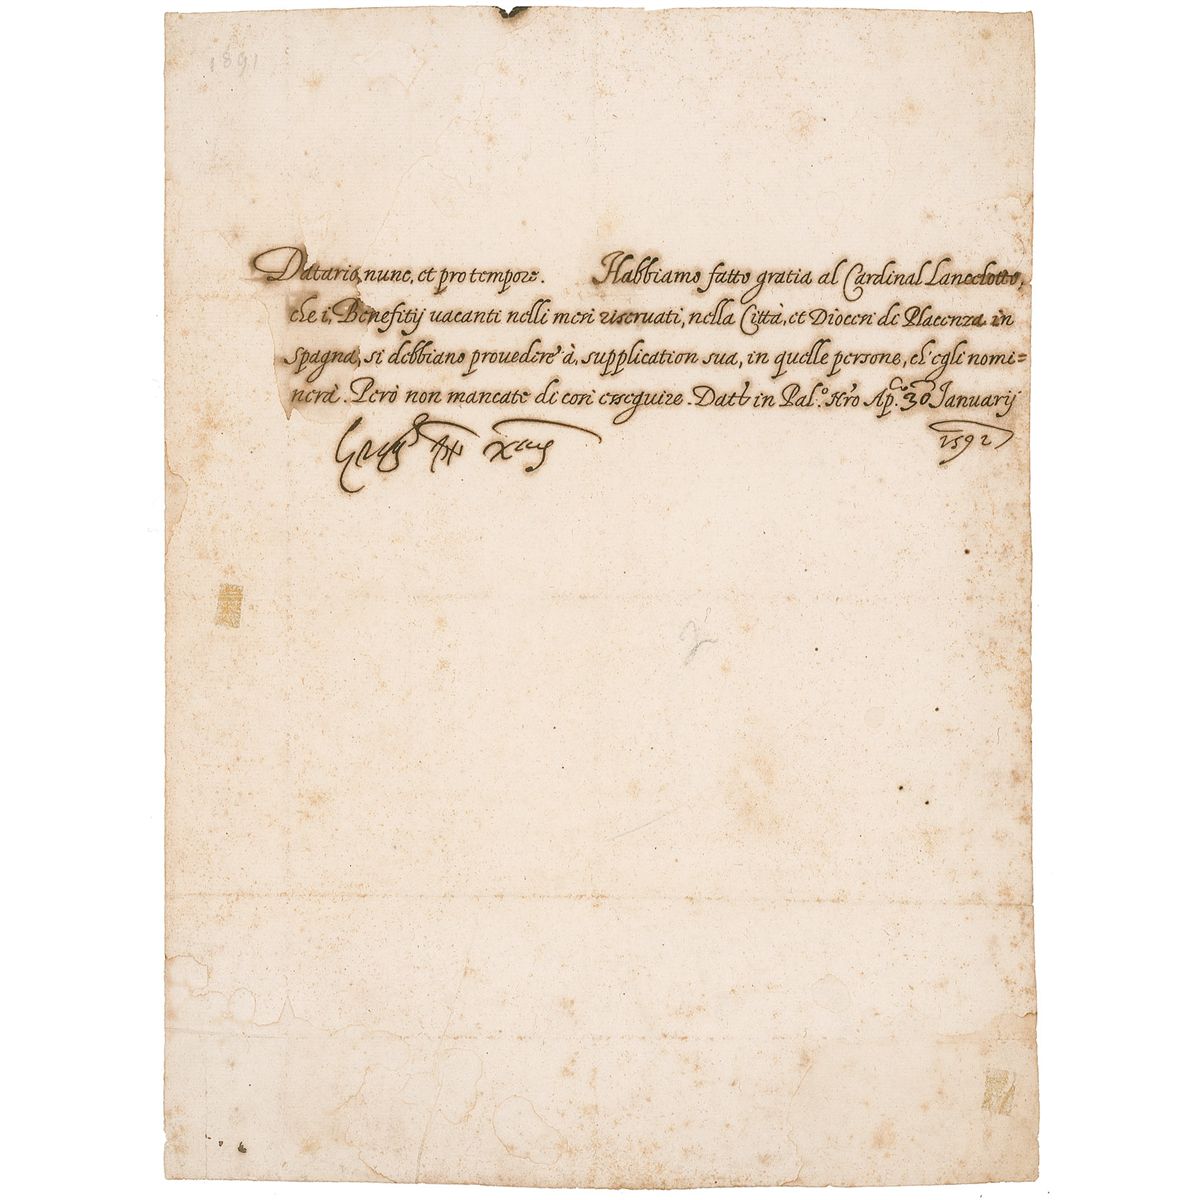 1891
Datario, nunc, et pro tempore. Habbiamo fatto gratia al Cardinal Lancelotto,
che i, Benefitij vacanti nelli mesi riservati, nella Città, et Diocesi de Placenza in
spagna, si debbiano provedere à, supplication sua, in quelle persone, ch'egli nomi=
nerà. Però non mancate di cosi esseguire. Datt in Pal.º Nrõ Ap.co 30 Januarij
1592